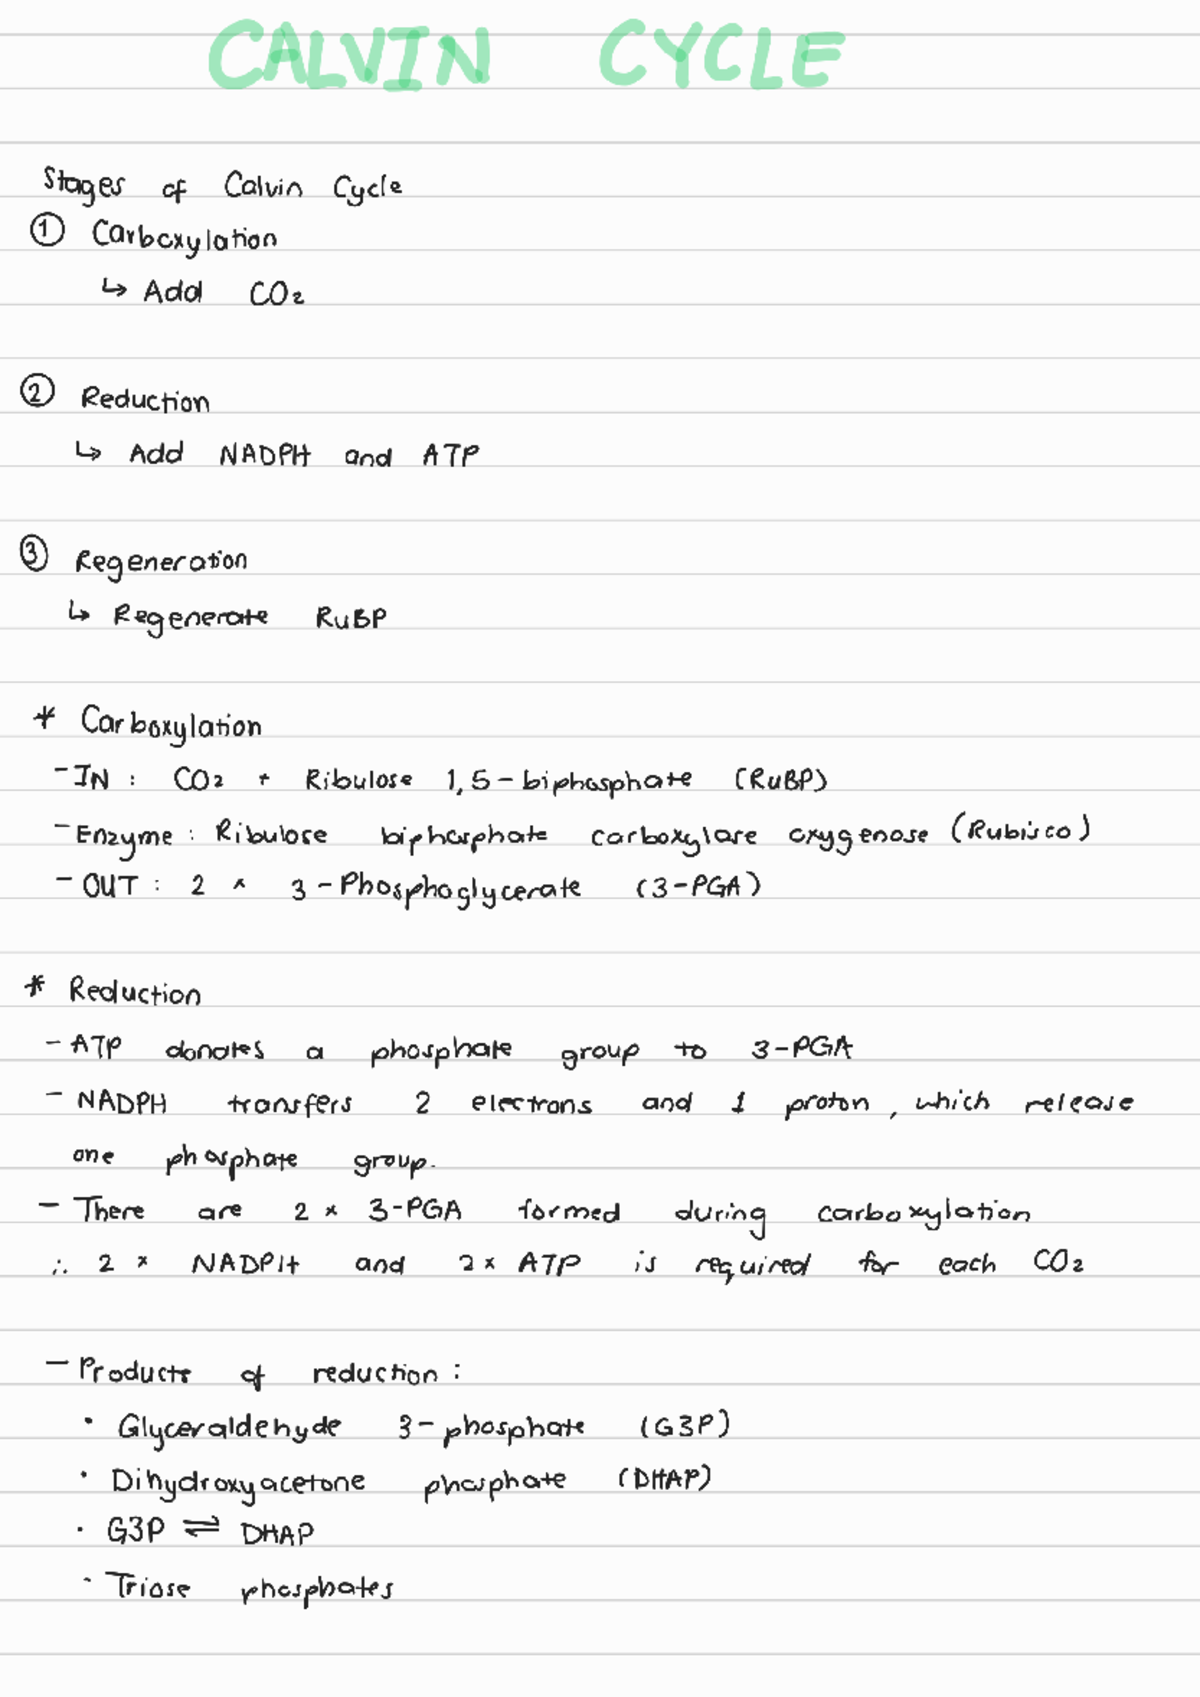 CALVIN CYCLE
Stages of Calvin Cycle
① Carboxylation
↳ Add CO₂
② Reduction
↳ Add NADPH and ATP
③ Regeneration
↳ Regenerate RuBP
* Carboxylation
- IN : CO₂ + Ribulose 1,5 - biphosphate (RuBP)
- Enzyme : Ribulose biphosphate carboxylase oxygenase (Rubisco)
- OUT : 2 × 3 - Phosphoglycerate (3-PGA)
* Reduction
- ATP donates a phosphate group to 3-PGA
- NADPH transfers 2 electrons and 1 proton, which release
one phosphate group.
- There are 2 × 3-PGA formed during carboxylation
∴ 2 × NADPH and 2 × ATP is required for each CO₂
- Products of reduction :
• Glyceraldehyde 3-phosphate (G3P)
• Dihydroxyacetone phosphate (DHAP)
• G3P ⇌ DHAP
• Triose phosphates